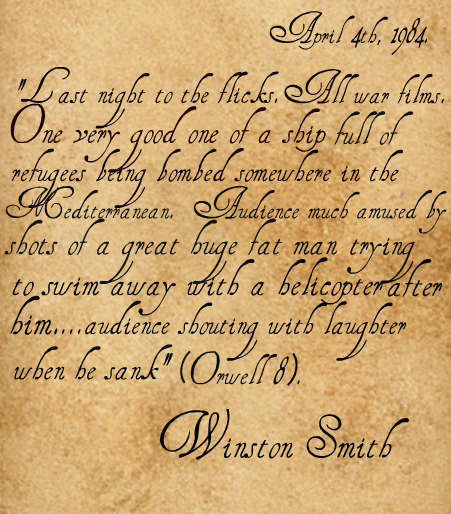 April 4th, 1984.
"Last night to the flicks. All war films.
One very good one of a ship full of
refugees being bombed somewhere in the
Mediterranean. Audience much amused by
shots of a great huge fat man trying
to swim away with a helicopter after
him....audience shouting with laughter
when he sank" (Orwell 8).
Winston Smith